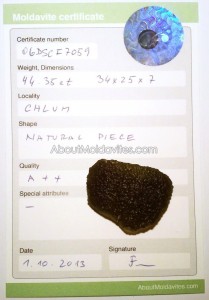 Moldavite certificate
Certificate number
Weight, Dimensions
44.35ct 34x25x7
Locality
CHLUM
Shape
NATURAL PIECE
AboutMoldavites.com
Quality
A++
Special attributes
–
Date
Signature
1.10.2013
AboutMoldavites.com